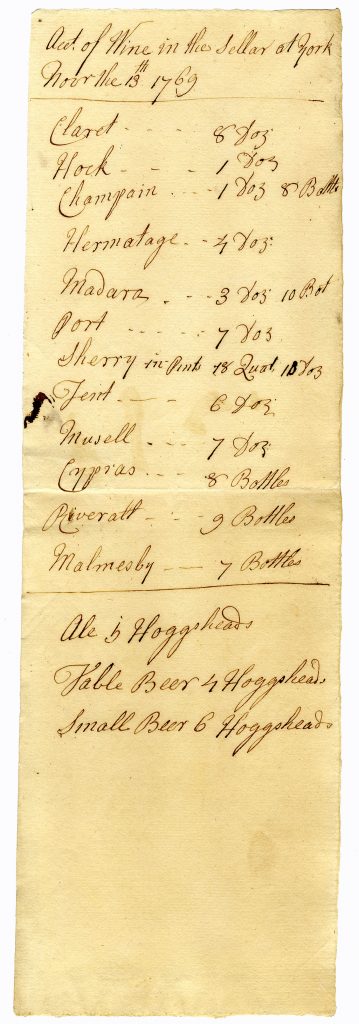 Acct. of Wine in the Sellar at York
Novr the 13th 1769
Claret - - - 8 Doz
Hock - - - 1 Doz
Champain - - - 1 Doz 8 Battls
Hermatage - - 4 Doz
Madara - - - 3 Doz 10 Bot
Port - - - - - 7 Doz
Sherry in Pints 18 Quat Doz
Tent - - - 6 Doz
Musell - - - 7 Doz
Cypras - - - 8 Bottles
Riveratt - - - 9 Bottles
Malmesby - - 7 Bottles
Ale 5 Hoggsheads
Table Beer 4 Hoggsheads
Small Beer 6 Hoggsheads